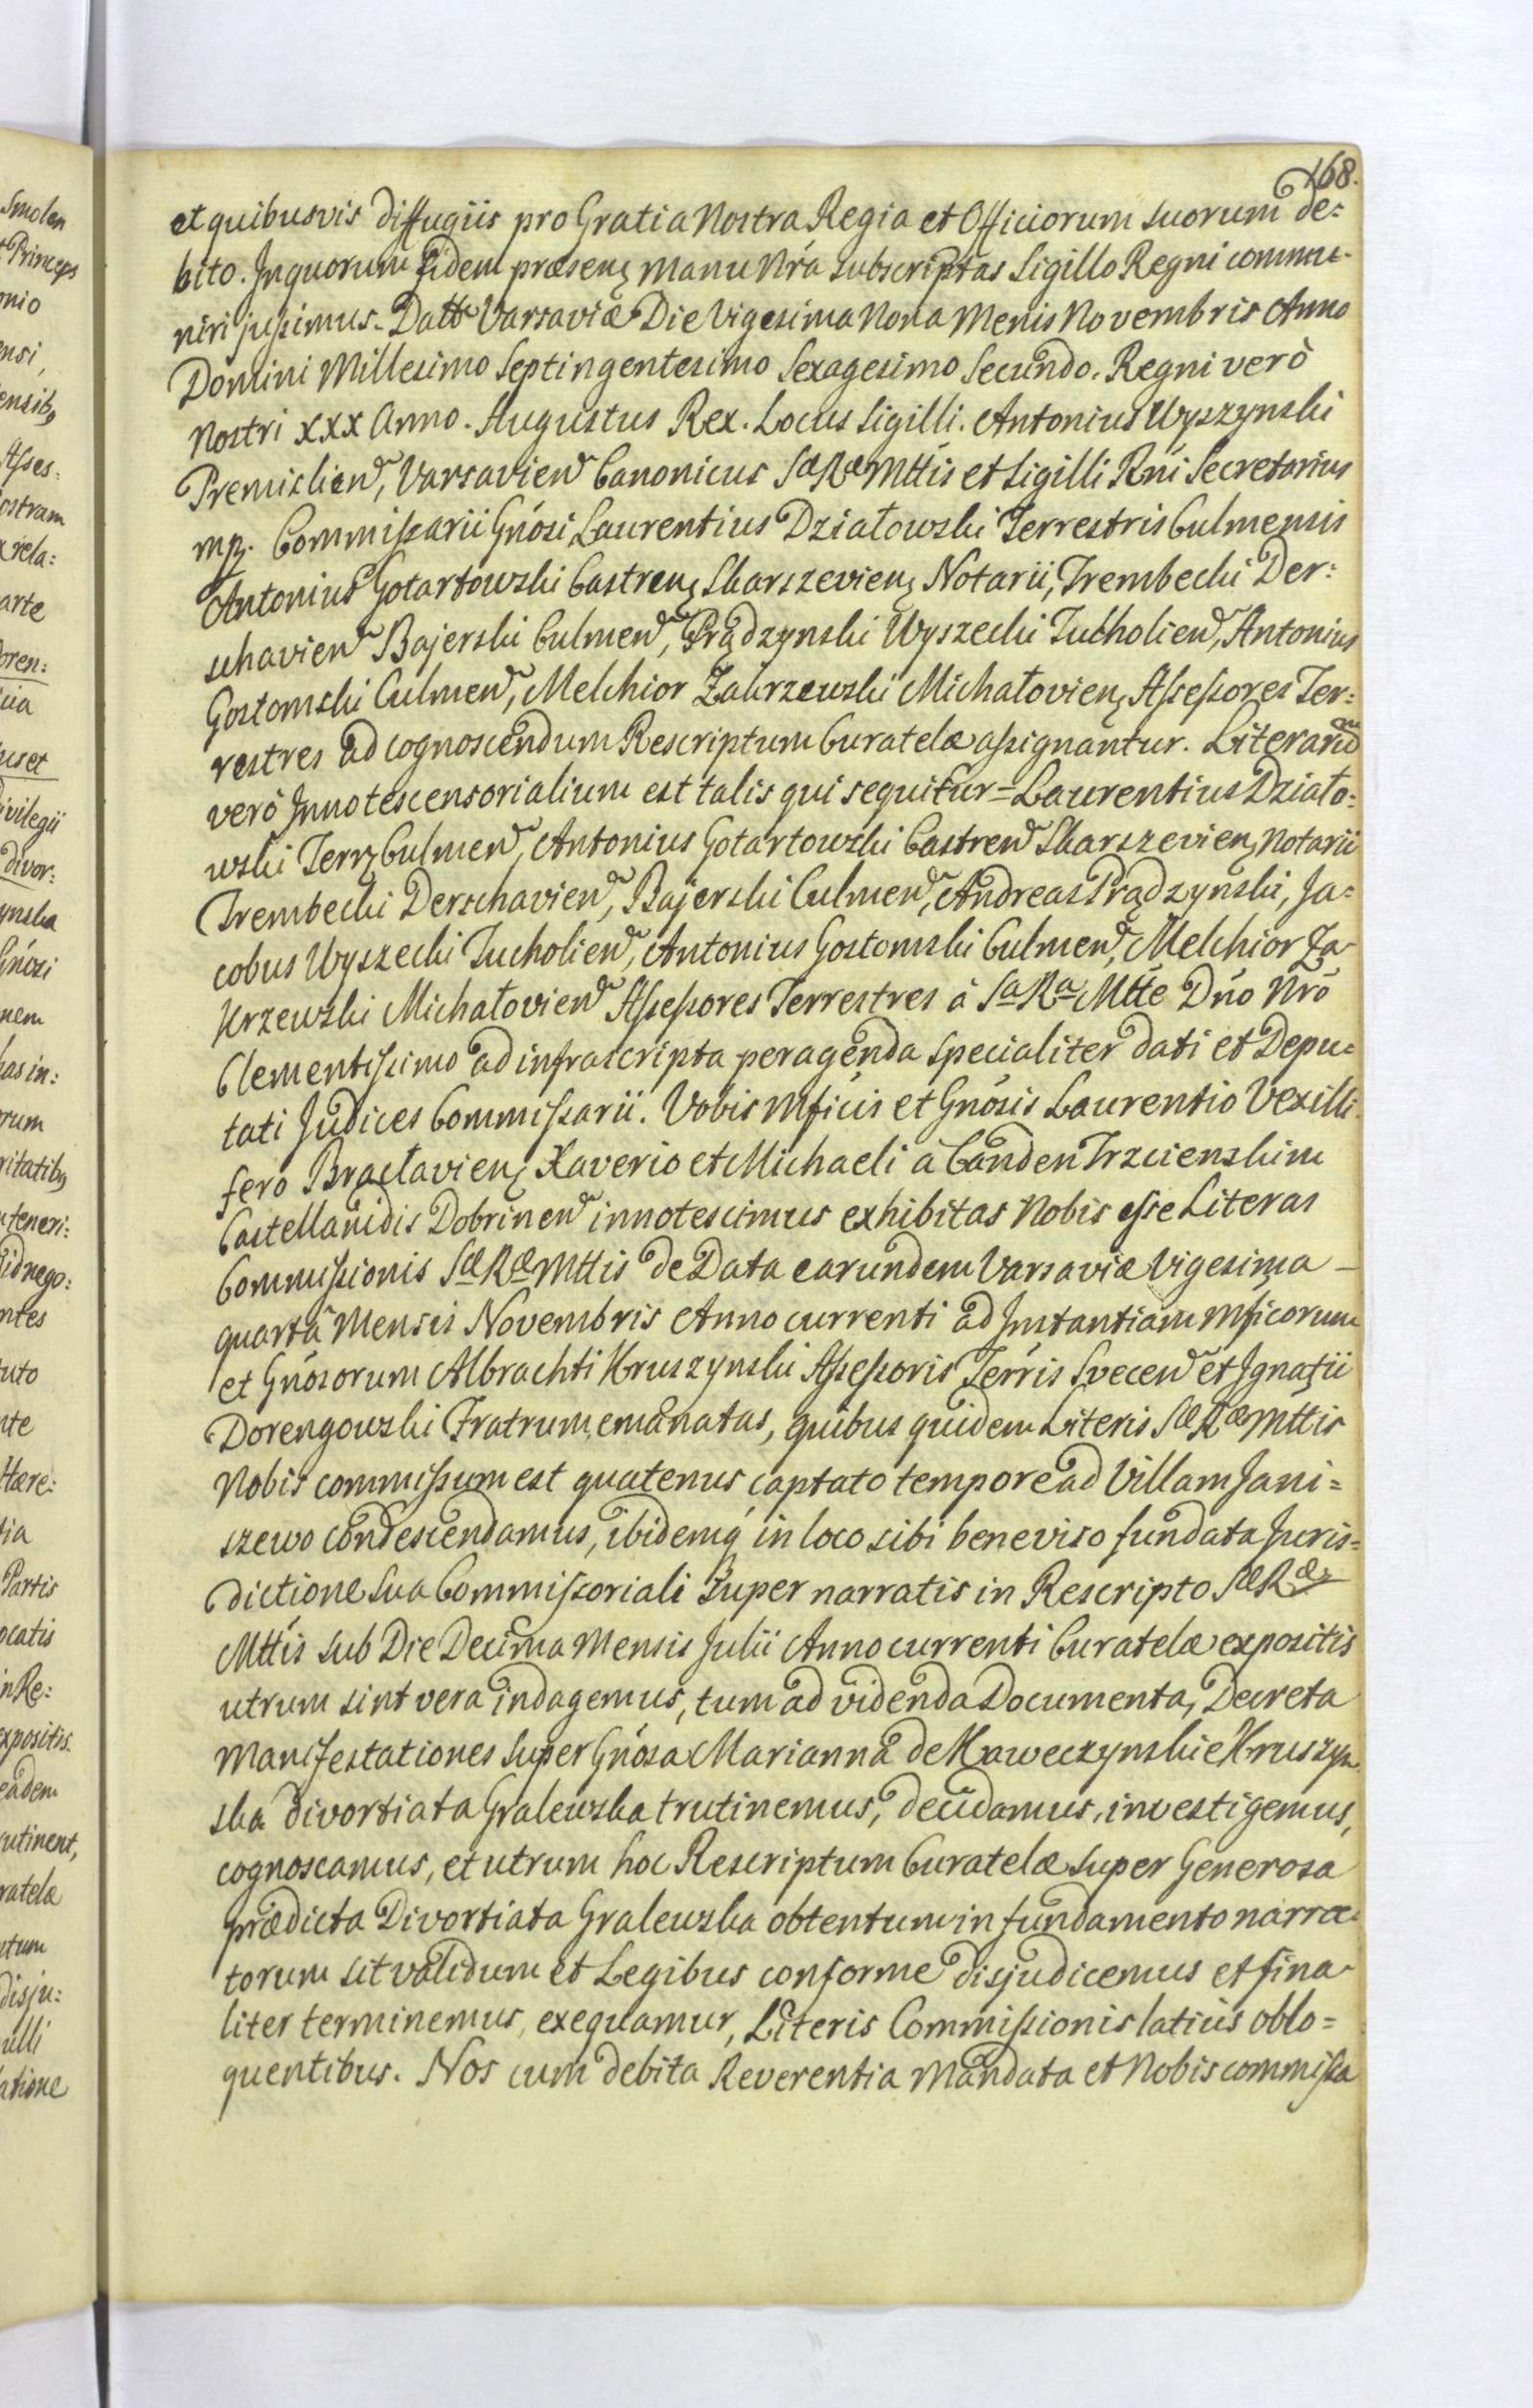 168.
et quibusvis diffugiis pro Gratia Nostra Regia et Officiorum suorum de=
bito. In quorum fidem præsenꝫ manu Nrá subscriptas Sigillo Regni commu-
niri jussimus. Datt Varsaviæ Die Vigesima Nona Menis Novembris Anno
Domini Millesimo Septingentesimo Sexagesimo Secundo. Regni verò
Nostri XXX Anno. Augustus Rex. Locus Sigilli. Antonius Wyszynski
Premislien, Varsavien Canonicus Sæ Ræ Mttis et Sigilli Rni Secretarius
mpꝫ. Commissarii Gnósi Laurentius Działowski Terrestris Culmensis
Antonius Gotartowski Castrenꝫ Skarszevienꝫ Notarii, Trembecki Der=
schavien Bajerski Culmen, Prądzynski Wyszecki Tucholien, Antonius
Gostomski Culmen, Melchior Zakrzewski Michałovienꝫ Assessores Ter=
restres ad cognoscendum Rescriptum Curatelæ assignantur. Literarum
verò Innotescensorialium est talis qui sequitur = Laurentius Działo=
wski Terrꝫ Culmen, Antonius Gotartowski Castren Skarszevienꝫ Notarii
Trembecki Derschavien, Bajerski Culmen, Andreas Prądzynski, Ja=
cobus Wyszecki Tucholien, Antonius Gostomski Culmen, Melchior Za
krzewski Michałovien Assessores Terrestres à Sa Ra Mtte Dno Nró
Clementissimo ad infrascripta peragenda specialiter dati et Depu=
tati Judices Commissarii. Vobis Mficis et Gnósis Laurentio Vexilli
fero Bracłavienꝫ Xaverio et Michaeli à Canden Trzcienskim
Castellanidis Dobrinen innotescimus exhibitas Nobis esse Literas
Commissionis Sæ Ræ Mttis de Data earundem Varsaviæ Vigesima
quarta Mensis Novembris Anno currenti ad Instantiam Mficorum
et Gnósorum Albrachti Kruszynski Assessoris Terris Svecen et Ignatii
Dorengowski Fratrum emanatas, quibus quidem Literis Sæ Ræ Mttis
Nobis commissum est quatenus captato tempore ad Villam Jani=
szewo condescendamus, ibidemq́ in loco sibi beneviso fundata Juris=
dictione Sua Commissoriali Super narratis in Rescripto Sæ Ræ
Mttis sub Die Decima Mensis Julii Anno currenti Curatelæ expositis
utrum sint vera indagemus, tum ad videnda Documenta, Decreta
Manifestationes super Gnósa Marianna de Kaweczynskie Kruszyn
ska divortiata Gralewska trutinemus, decidamus, investigemus,
cognoscamus, et utrum hoc Rescriptum Curatelæ super Generosa
prædicta Divortiata Gralewska obtentum in fundamento narra=
torum sit validum et Legibus conforme disjudicemus et fina=
liter terminemus, exequamur, Literis Commissionis latius oblo=
quentibus. Nos cum debita Reverentia Mandata et Nobis commissa